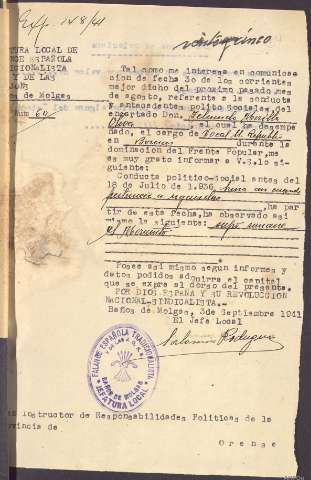 Exp. 148/41
veinticinco
TURA LOCAL DE
NGE ESPAÑOLA
DICIONALISTA
Y DE LAS
JONS
de Molgas
Núm 64
Tal como me interesa en comunica-
cion de fecha 30 de los corrientes
mejor dicho del proximo pasado mes
de agosto, referente a la conducta
y antecedentes politico Sociales, del
encartado Don.
el cual ha desempe
ñado, el cargo de Vocal U. Republi
en durante la
dominacion del Frente Popular, me
es muy grato informar a V.S. lo si-
guiente:
Conducta politico-Social antes del
18 de Julio de 1.936,
pertenecio a izquierdas, ha par
tir de esta Fecha, ha observado asi
mismo la siguiente:
el Movimiento
Posee asi mismo segun informes y
datos podidos adquirir el capital
que se expre al dorso del presente.
POR DIOS ESPAÑA Y SU REVOLUCION
NACIONAL-SINDICALISTA.-
Baños de Molgas, 3 de Septiembre 1941
El Jefe Local
FALANGE ESPAÑOLA TRADICIONALISTA
BAÑOS DE MOLGAS
JEFATURA LOCAL
Instructor de Responsabilidades Politicas de la
vincia de
Orense